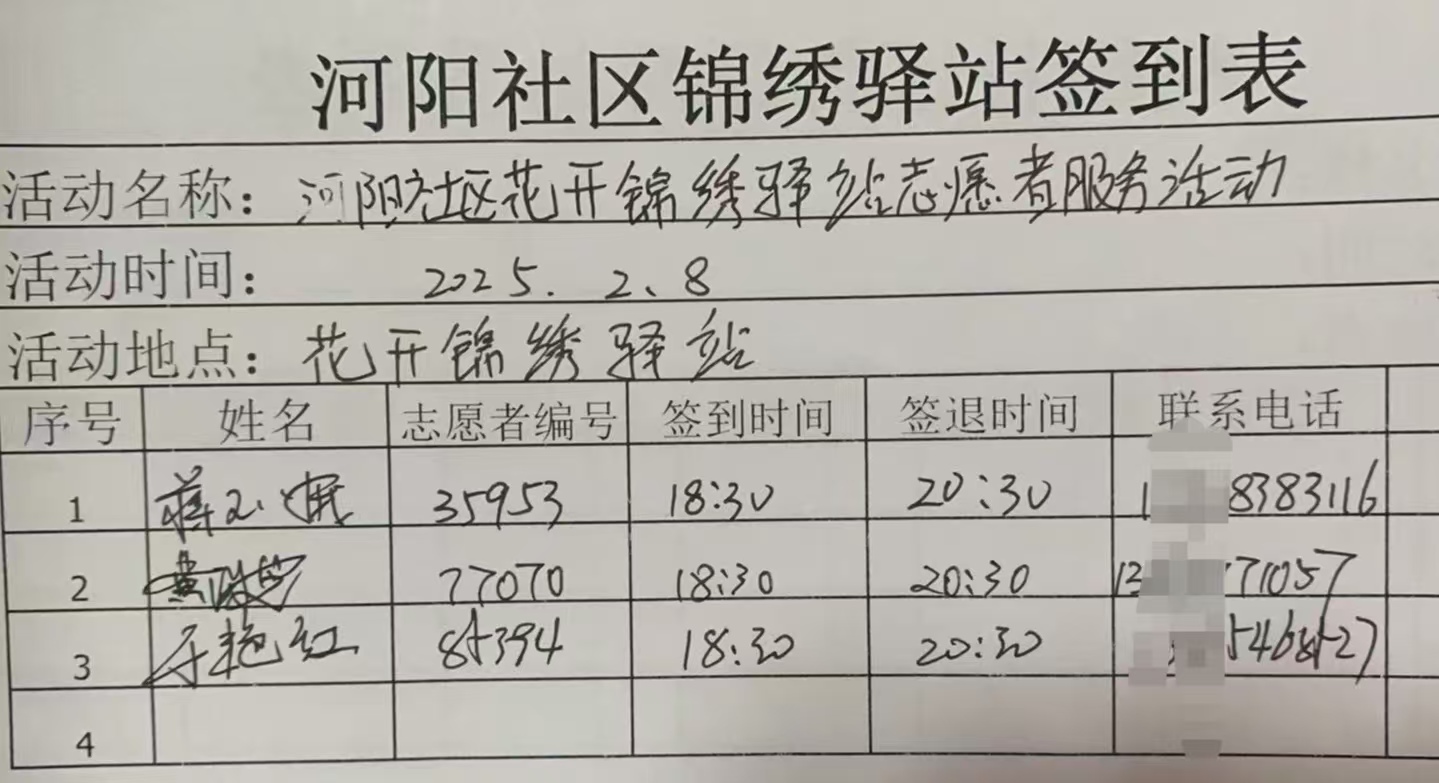 河阳社区锦绣驿站签到表
活动名称：河阳社区花开锦绣驿站志愿者服务活动
活动时间： 2025. 2、8
活动地点：花开锦绣驿站
序号 姓名 志愿者编号 签到时间 签退时间 联系电话
1 蒋 35953 18:30 20:30 1 8383116
2 黄 77070 18:30 20:30 13 71057
3 艳红 85394 18:30 20:30 5468527
4